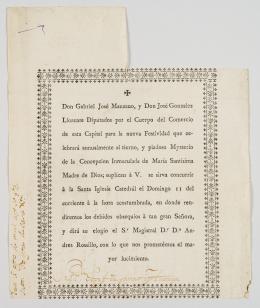 Don Gabriel José Manzano, y Don José Gonzalez
Diputados por el Cuerpo del Comercio
de esta Capital para la nueva Festividad que ce-
lebrará anualmente al tierno, y piadoso Mysterio
de la Concepcion Inmaculada de Maria Santisima
Madre de Dios; suplican á V. se sirva concurrir
á la Santa Iglesia Catedrál el Domingo 11 del
corriente á la hora acostumbrada, en donde rendi-
remos los debidos obsequios á tan gran Señora,
y dirá su elogio el Sr. Magistral Dr. Dn. An-
dres Rosillo, con lo que nos prometémos el ma-
yor lucimiento.